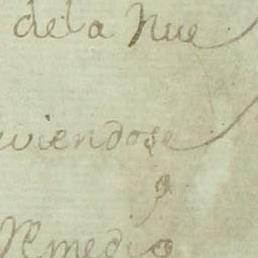 dela Nue
viendose
Remedio